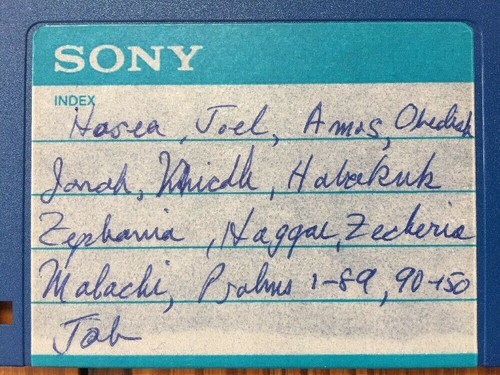 SONY
INDEX
Hosea, Joel, Amos, Obediah
Jonah, Micah, Habakuk
Zephania, Haggai, Zecheria
Malachi, Psalms 1-89, 90-150
Job